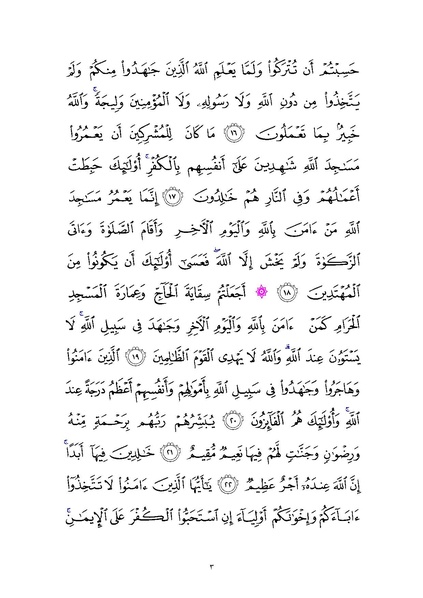 حَسِبْتُمْ أَن تُتْرَكُوا۟ وَلَمَّا يَعْلَمِ ٱللَّهُ ٱلَّذِينَ جَـٰهَدُوا۟ مِنكُمْ وَلَمْ
يَتَّخِذُوا۟ مِن دُونِ ٱللَّهِ وَلَا رَسُولِهِۦ وَلَا ٱلْمُؤْمِنِينَ وَلِيجَةً ۚ وَٱللَّهُ
خَبِيرٌۢ بِمَا تَعْمَلُونَ ﴿١٦﴾ مَا كَانَ لِلْمُشْرِكِينَ أَن يَعْمُرُوا۟
مَسَـٰجِدَ ٱللَّهِ شَـٰهِدِينَ عَلَىٰٓ أَنفُسِهِم بِٱلْكُفْرِ ۚ أُو۟لَـٰٓئِكَ حَبِطَتْ
أَعْمَـٰلُهُمْ وَفِى ٱلنَّارِ هُمْ خَـٰلِدُونَ ﴿١٧﴾ إِنَّمَا يَعْمُرُ مَسَـٰجِدَ
ٱللَّهِ مَنْ ءَامَنَ بِٱللَّهِ وَٱلْيَوْمِ ٱلْـَٔاخِرِ وَأَقَامَ ٱلصَّلَوٰةَ وَءَاتَى
ٱلزَّكَوٰةَ وَلَمْ يَخْشَ إِلَّا ٱللَّهَ ۖ فَعَسَىٰٓ أُو۟لَـٰٓئِكَ أَن يَكُونُوا۟ مِنَ
ٱلْمُهْتَدِينَ ﴿١٨﴾ ۞ أَجَعَلْتُمْ سِقَايَةَ ٱلْحَآجِّ وَعِمَارَةَ ٱلْمَسْجِدِ
ٱلْحَرَامِ كَمَنْ ءَامَنَ بِٱللَّهِ وَٱلْيَوْمِ ٱلْـَٔاخِرِ وَجَـٰهَدَ فِى سَبِيلِ ٱللَّهِ ۚ لَا
يَسْتَوُۥنَ عِندَ ٱللَّهِ ۗ وَٱللَّهُ لَا يَهْدِى ٱلْقَوْمَ ٱلظَّـٰلِمِينَ ﴿١٩﴾ ٱلَّذِينَ ءَامَنُوا۟
وَهَاجَرُوا۟ وَجَـٰهَدُوا۟ فِى سَبِيلِ ٱللَّهِ بِأَمْوَٰلِهِمْ وَأَنفُسِهِمْ أَعْظَمُ دَرَجَةً عِندَ
ٱللَّهِ ۚ وَأُو۟لَـٰٓئِكَ هُمُ ٱلْفَآئِزُونَ ﴿٢٠﴾ يُبَشِّرُهُمْ رَبُّهُم بِرَحْمَةٍ مِّنْهُ
وَرِضْوَٰنٍ وَجَنَّـٰتٍ لَّهُمْ فِيهَا نَعِيمٌ مُّقِيمٌ ﴿٢١﴾ خَـٰلِدِينَ فِيهَآ أَبَدًا ۚ
إِنَّ ٱللَّهَ عِندَهُۥٓ أَجْرٌ عَظِيمٌ ﴿٢٢﴾ يَـٰٓأَيُّهَا ٱلَّذِينَ ءَامَنُوا۟ لَا تَتَّخِذُوٓا۟
ءَابَآءَكُمْ وَإِخْوَٰنَكُمْ أَوْلِيَآءَ إِنِ ٱسْتَحَبُّوا۟ ٱلْكُفْرَ عَلَى ٱلْإِيمَـٰنِ ۚ
٣